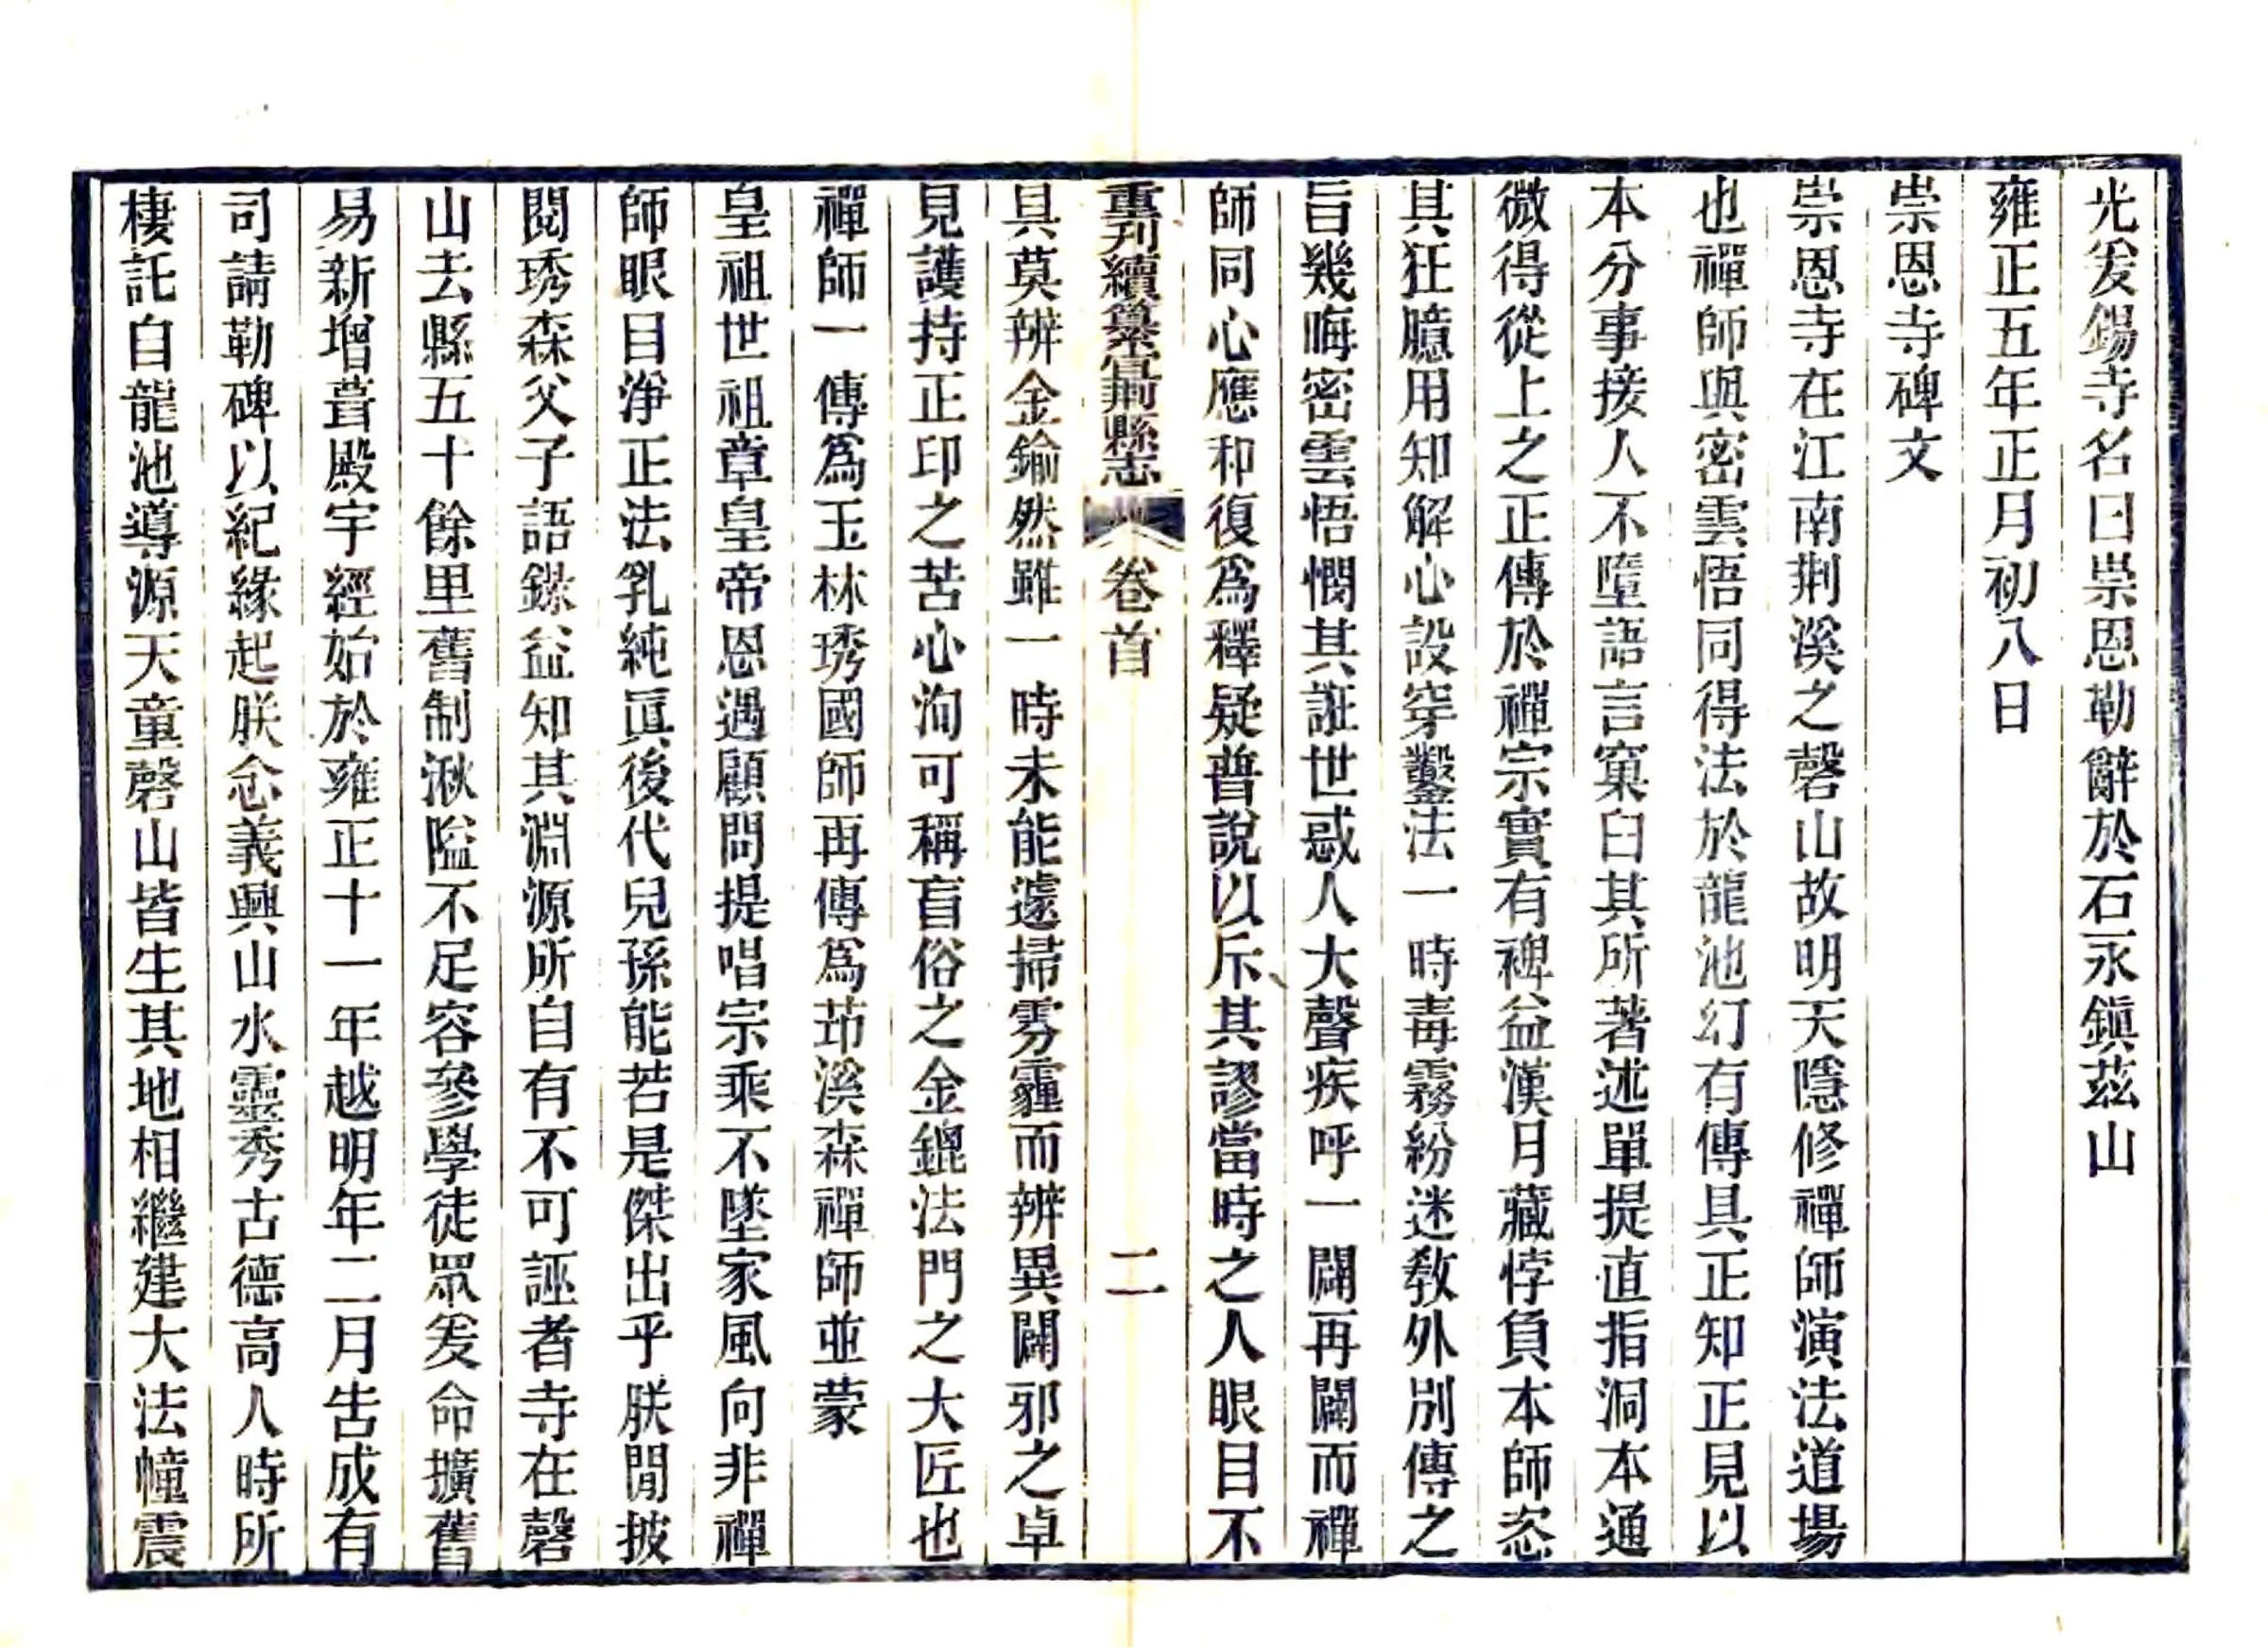 光爰錫寺名曰崇恩勒辭於石永鎭茲山
雍正五年正月初八日
崇恩寺碑文
崇恩寺在江南荆溪之磬山故明天隱修禪師演法道場
也禪師與密雲悟同得法於龍池幻有傳具正知正見以
本分事接人不墮語言窠臼其所著述單提直指洞本通
微得從上之正傳於禪宗實有裨益漢月藏悖負本師恣
其狂臆用知解心設穿鑿法一時毒霧紛迷敎外別傳之
旨幾晦密雲悟憫其誑世惑人大聲疾呼一闢再闢而禪
師同心應和復爲釋疑普說以斥其謬當時之人眼目不
重刊續纂宜荆縣志 卷首 二
具莫辨金鍮然雖一時未能遽掃雰霾而辨異闢邪之卓
見護持正印之苦心洵可稱盲俗之金鎞法門之大匠也
禪師一傳爲玉林琇國師再傳爲茆溪森禪師並蒙
皇祖世祖章皇帝恩遇顧問提唱宗乘不墜家風向非禪
師眼目淨正法乳純眞後代兒孫能若是傑出乎朕閒披
閱琇森父子語錄益知其淵源所自有不可誣者寺在磬
山去縣五十餘里舊制湫隘不足容參學徒眾爰命擴舊
易新增葺殿宇經始於雍正十一年越明年二月告成有
司請勒碑以紀緣起朕念義興山水靈秀古德高人時所
棲託自龍池導源天童磬山皆生其地相繼建大法幢震